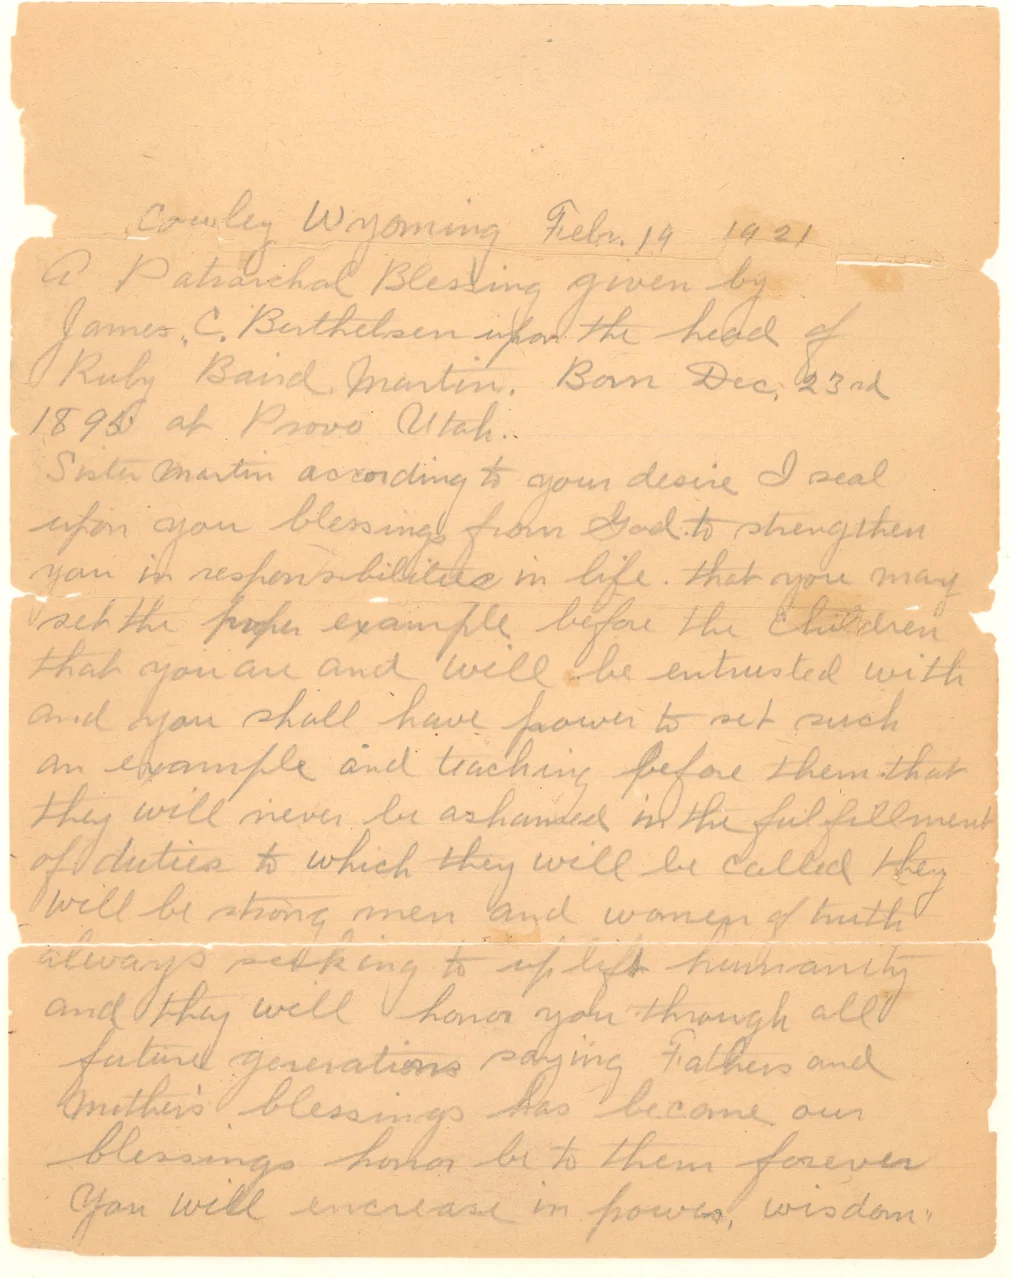 Cowley Wyoming Febr. 19 1921
A Patriarchal Blessing given by
James. C. Berthelsen upon the head of
Ruby Baird Martin. Born Dec, 23rd
1895 at Provo Utah..
Sister Martin according to your desire I seal
upon you blessings from God. to strengthen
you in responsibilities in life. that you may
set the proper example before the Children
that you are and will be entrusted with
and you shall have power to set such
an example and teaching before them that
they will never be ashamed in the fulfillment
of duties to which they will be called they
will be strong men and women of truth
always seeking to uplift humanity
and they will honor you through all
future generations saying Fathers and
Mother's blessings has become our
blessings honor be to them forever
You will encrease in power, wisdom.